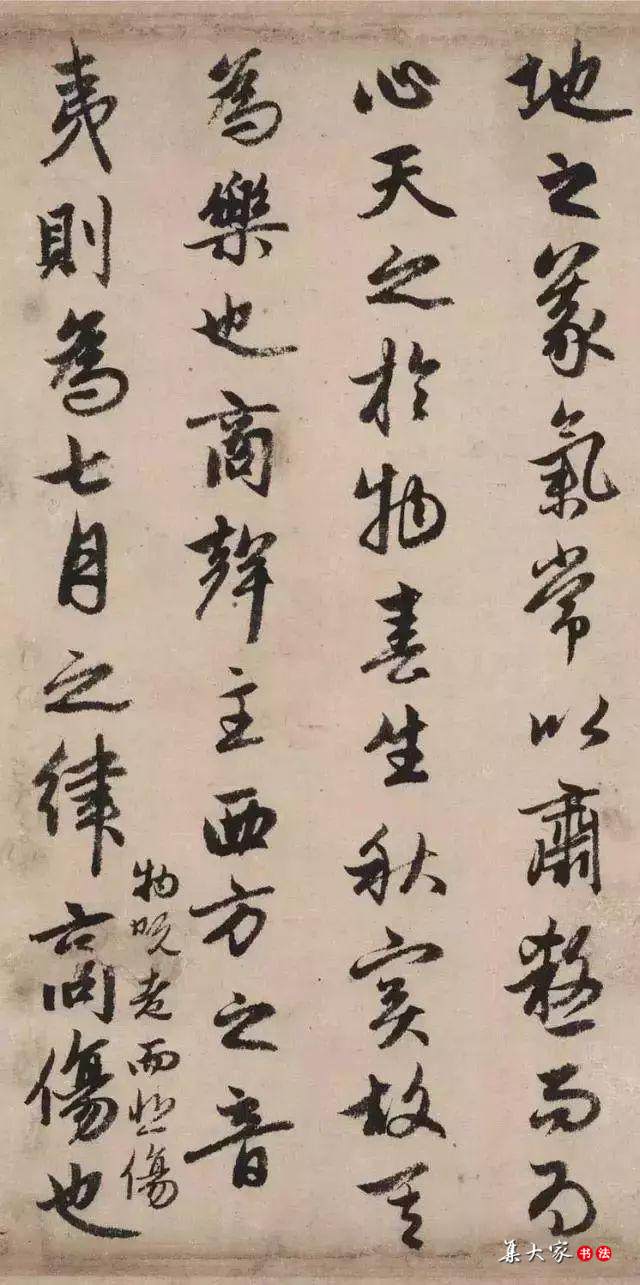 地之義氣常以肅殺而為
心天之於物春生秋實故其
為樂也商聲主西方之音
夷則為七月之律商傷也
物既老而悲傷
集大家书法